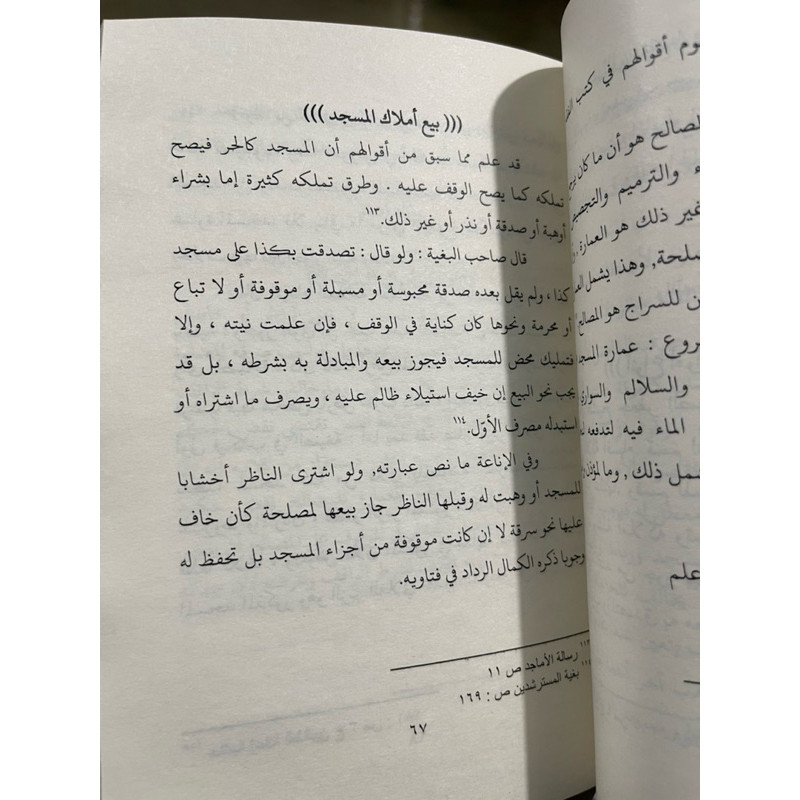 ((( بيع أملاك المسجد )))
قد علم مما سبق من أقوالهم أن المسجد كالحر فيصح
تملكه كما يصح الوقف عليه . وطرق تملكه كثيرة إما بشراء
أوهبة أو صدقة أو نذر أو غير ذلك.١١٣
قال صاحب البغية : ولو قال : تصدقت بكذا على مسجد
كذا ، ولم يقل بعده صدقة محبوسة أو مسبلة أو موقوفة أو لا تباع
أو محرمة ونحوها كان كناية في الوقف ، فإن علمت نيته ، وإلا
فتمليك محض للمسجد فيجوز بيعه والمبادلة به بشرطه ، بل قد
يجب نحو البيع إن خيف استيلاء ظالم عليه ، ويصرف ما اشتراه أو
استبدله مصرف الأوّل.١١٤
وفي الإناعة ما نص عبارته, ولو اشترى الناظر أخشابا
للمسجد أو وهبت له وقبلها الناظر جاز بيعها لمصلحة كأن خاف
عليها نحو سرقة لا إن كانت موقوفة من أجزاء المسجد بل تحفظ له
وجوبا ذكره الكمال الرداد في فتاويه.
١١٣ رسالة الأماجد ص ١١
بغية المسترشدين ص : ١٦٩
٦٧
أقوالهم في كتب
لمصالح هو أن ما كان
والترميم والتجصيص
غير ذلك هو العمارة
وهذا يشمل
للسراج هو المصالح
: عمارة المسجد
والسلالم والسواري
الماء فيه لتدفعه
ذلك , وما
علم